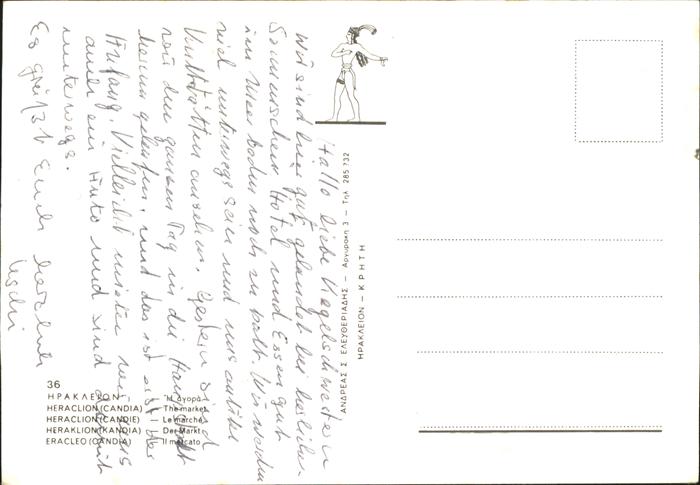 Hallo liebe Kegelschwestern
wir sind hier gut gelandet bei herrlichem
Sonnenschein. Hotel und Essen gut
im Meer baden noch zu kalt. Wir werden
viel unterwegs sein und uns antike
Kultstätten ansehen. Gestern sind
wir den ganzen Tag in der Hauptstadt
herum gelaufen, und das ist erst der
Anfang. Vielleicht mieten wir uns
auch ein Auto und sind damit
unterwegs.
Es grüßt Euch herzlich
Uschi
36
ΗΡΑΚΛΕΙΟΝ — Ἡ ἀγορά
HERACLION (CANDIA) — The market
HERACLION (CANDIE) — Le marché
HERAKLION (KANDIA) — Der Markt
ERACLEO (CANDIA) — Il mercato
ΑΝΔΡΕΑΣ Σ. ΕΛΕΥΘΕΡΙΑΔΗΣ — Αργυράκη 3 — Τηλ. 285 732
ΗΡΑΚΛΕΙΟΝ - ΚΡΗΤΗ